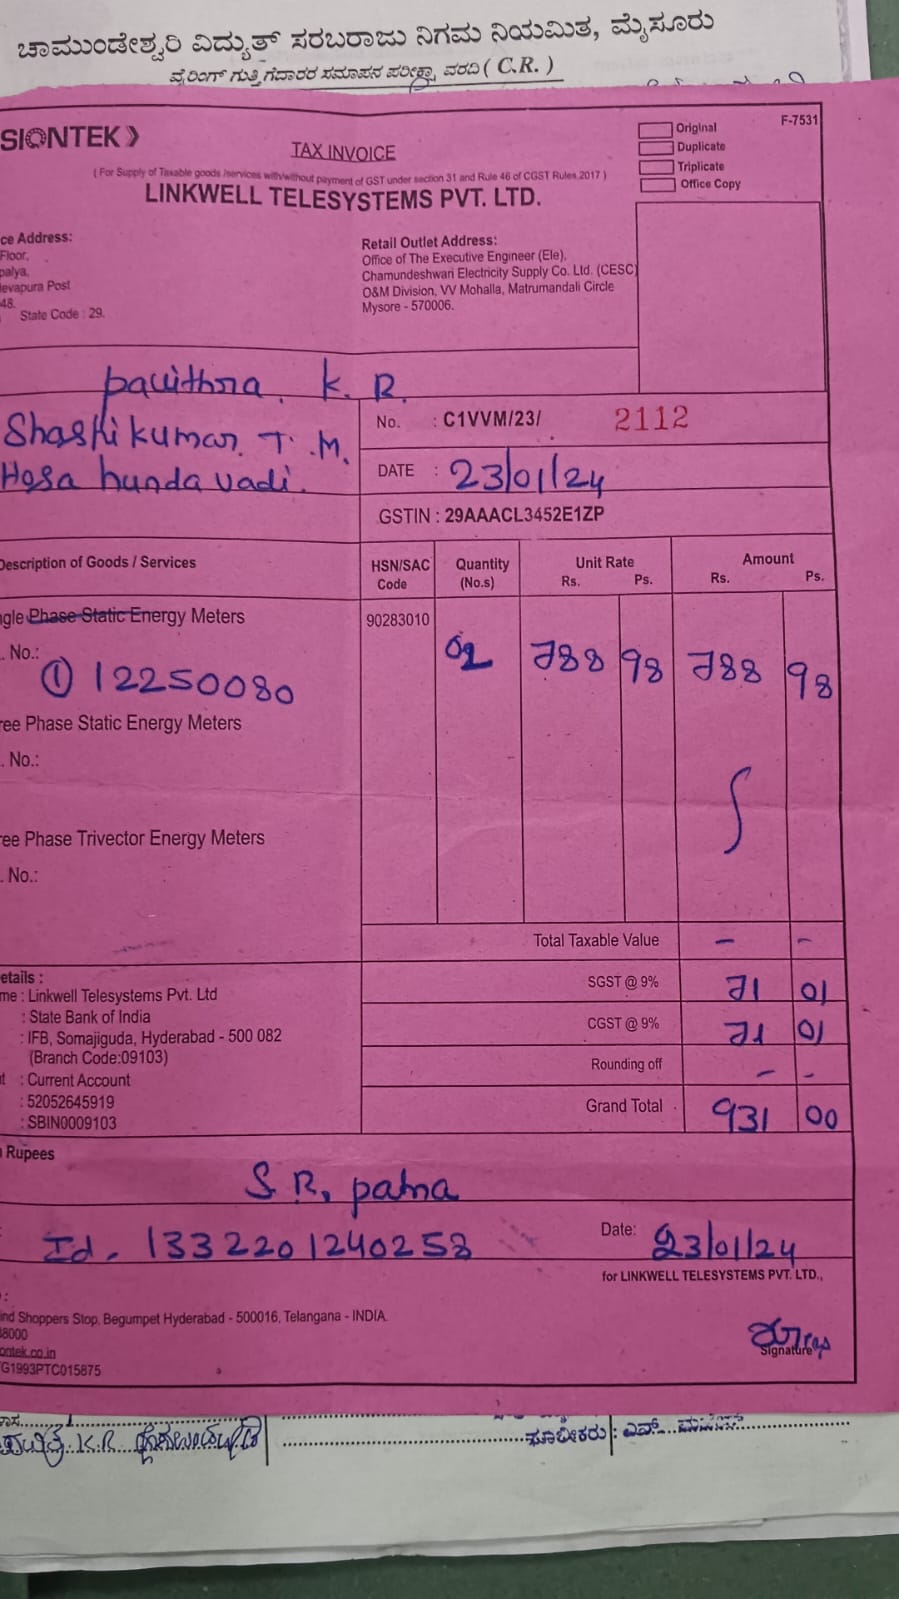 ಚಾಮುಂಡೇಶ್ವರಿ ವಿದ್ಯುತ್ ಸರಬರಾಜು ನಿಗಮ ನಿಯಮಿತ, ಮೈಸೂರು
ವೈರಿಂಗ್ ಗುತ್ತಿಗೆದಾರರ ಸಮಾಪನ ಪರೀಕ್ಷಾ ವರದಿ ( C.R. )
SIONTEK
TAX INVOICE
F-7531
Original
Duplicate
Triplicate
Office Copy
( For Supply of Taxable goods /services with/without payment of GST under section 31 and Rule 46 of CGST Rules 2017 )
LINKWELL TELESYSTEMS PVT. LTD.
ce Address:
Floor,
palya,
levapura Post
48.
State Code : 29.
Retail Outlet Address:
Office of The Executive Engineer (Ele),
Chamundeshwari Electricity Supply Co. Ltd. (CESC)
O&M Division, VV Mohalla, Matrumandali Circle
Mysore - 570006.
pavithra. K. R.
Shashikumar. T. M.
Hosa hundavadi.
No. : C1VVM/23/ 2112
DATE : 23/01/24
GSTIN : 29AAACL3452E1ZP
Description of Goods / Services HSN/SAC Code Quantity (No.s) Unit Rate Rs. Ps. Amount Rs. Ps.
ngle Phase Static Energy Meters 90283010
. No.: 02 788 98 788 98
① 12250080
ree Phase Static Energy Meters
. No.:
ree Phase Trivector Energy Meters
. No.:
Total Taxable Value - -
SGST @ 9% 71 01
CGST @ 9% 71 01
Rounding off - -
Grand Total 931 00
etails :
me : Linkwell Telesystems Pvt. Ltd
: State Bank of India
: IFB, Somajiguda, Hyderabad - 500 082
(Branch Code:09103)
t : Current Account
: 52052645919
: SBIN0009103
Rupees
S. R. patna
Id. 1332201240258
Date: 23/01/24
for LINKWELL TELESYSTEMS PVT. LTD.,
ind Shoppers Stop, Begumpet Hyderabad - 500016, Telangana - INDIA.
38000
ontek.co.in
G1993PTC015875
Signature
K.R.